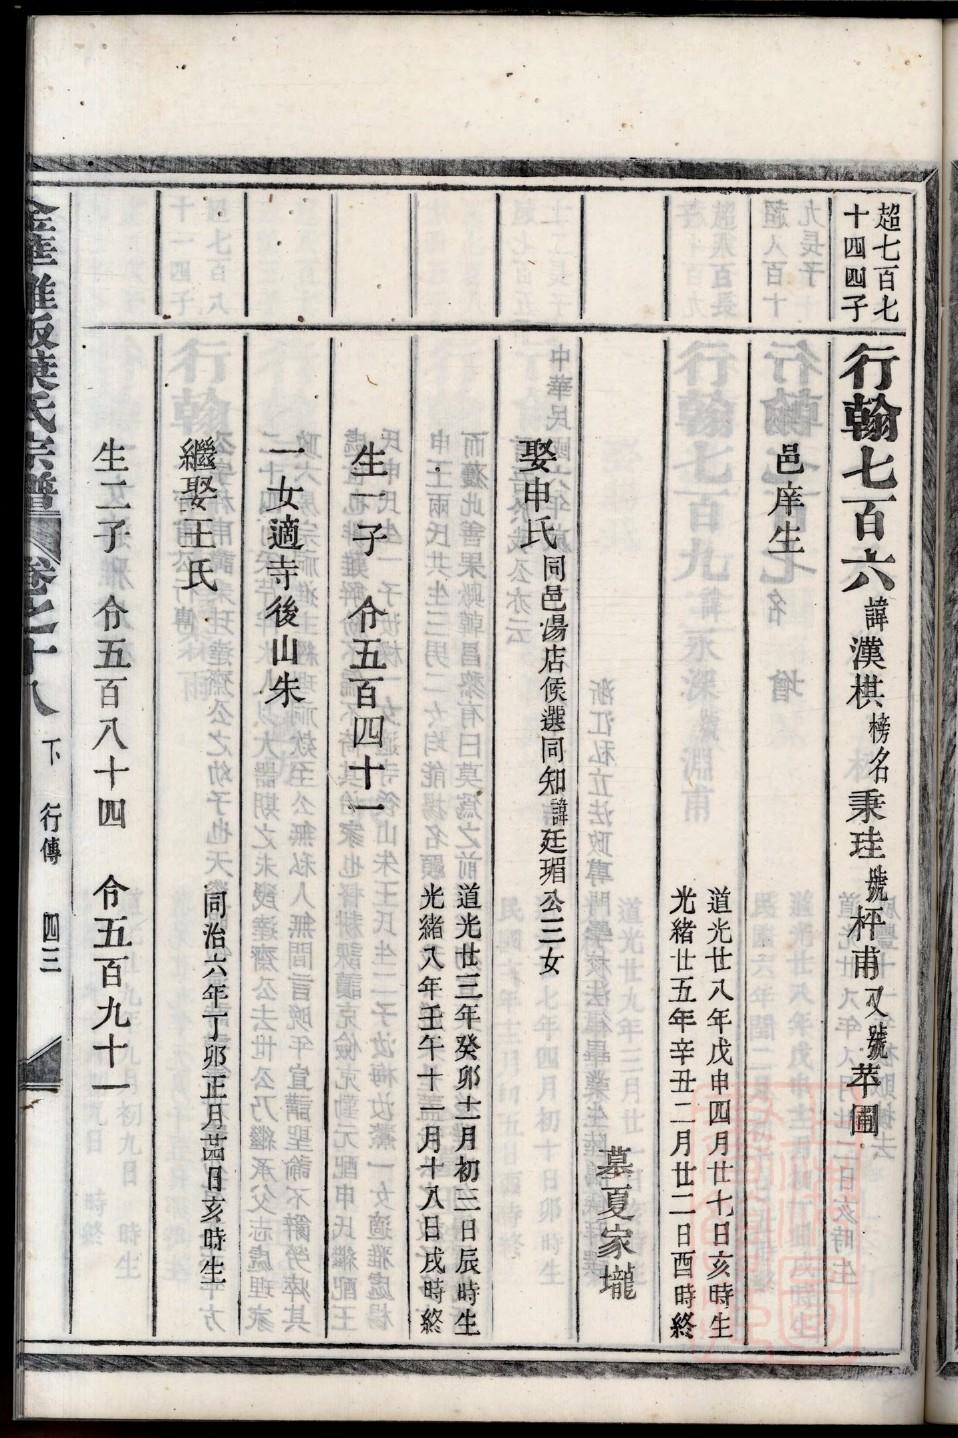 超七百七
十四四子
行翰七百六諱漢棋榜名秉珪號杯甫又號苹圃
邑庠生
道光廿八年戊申四月廿七日亥時生
光緒廿五年辛丑二月廿二日酉時終
墓夏家壠
娶申氏同邑湯店候選同知諱廷瑂公三女
道光廿三年癸卯十二月初三日辰時生
光緒八年壬午十一月十八日戌時終
生一子 令五百四十一
一女適寺後山朱
繼娶王氏
同治六年丁卯正月廿四日亥時生
生二子 令五百八十四 令五百九十一
金華雅畈葉氏宗譜 卷之十八 下 行傳 四三